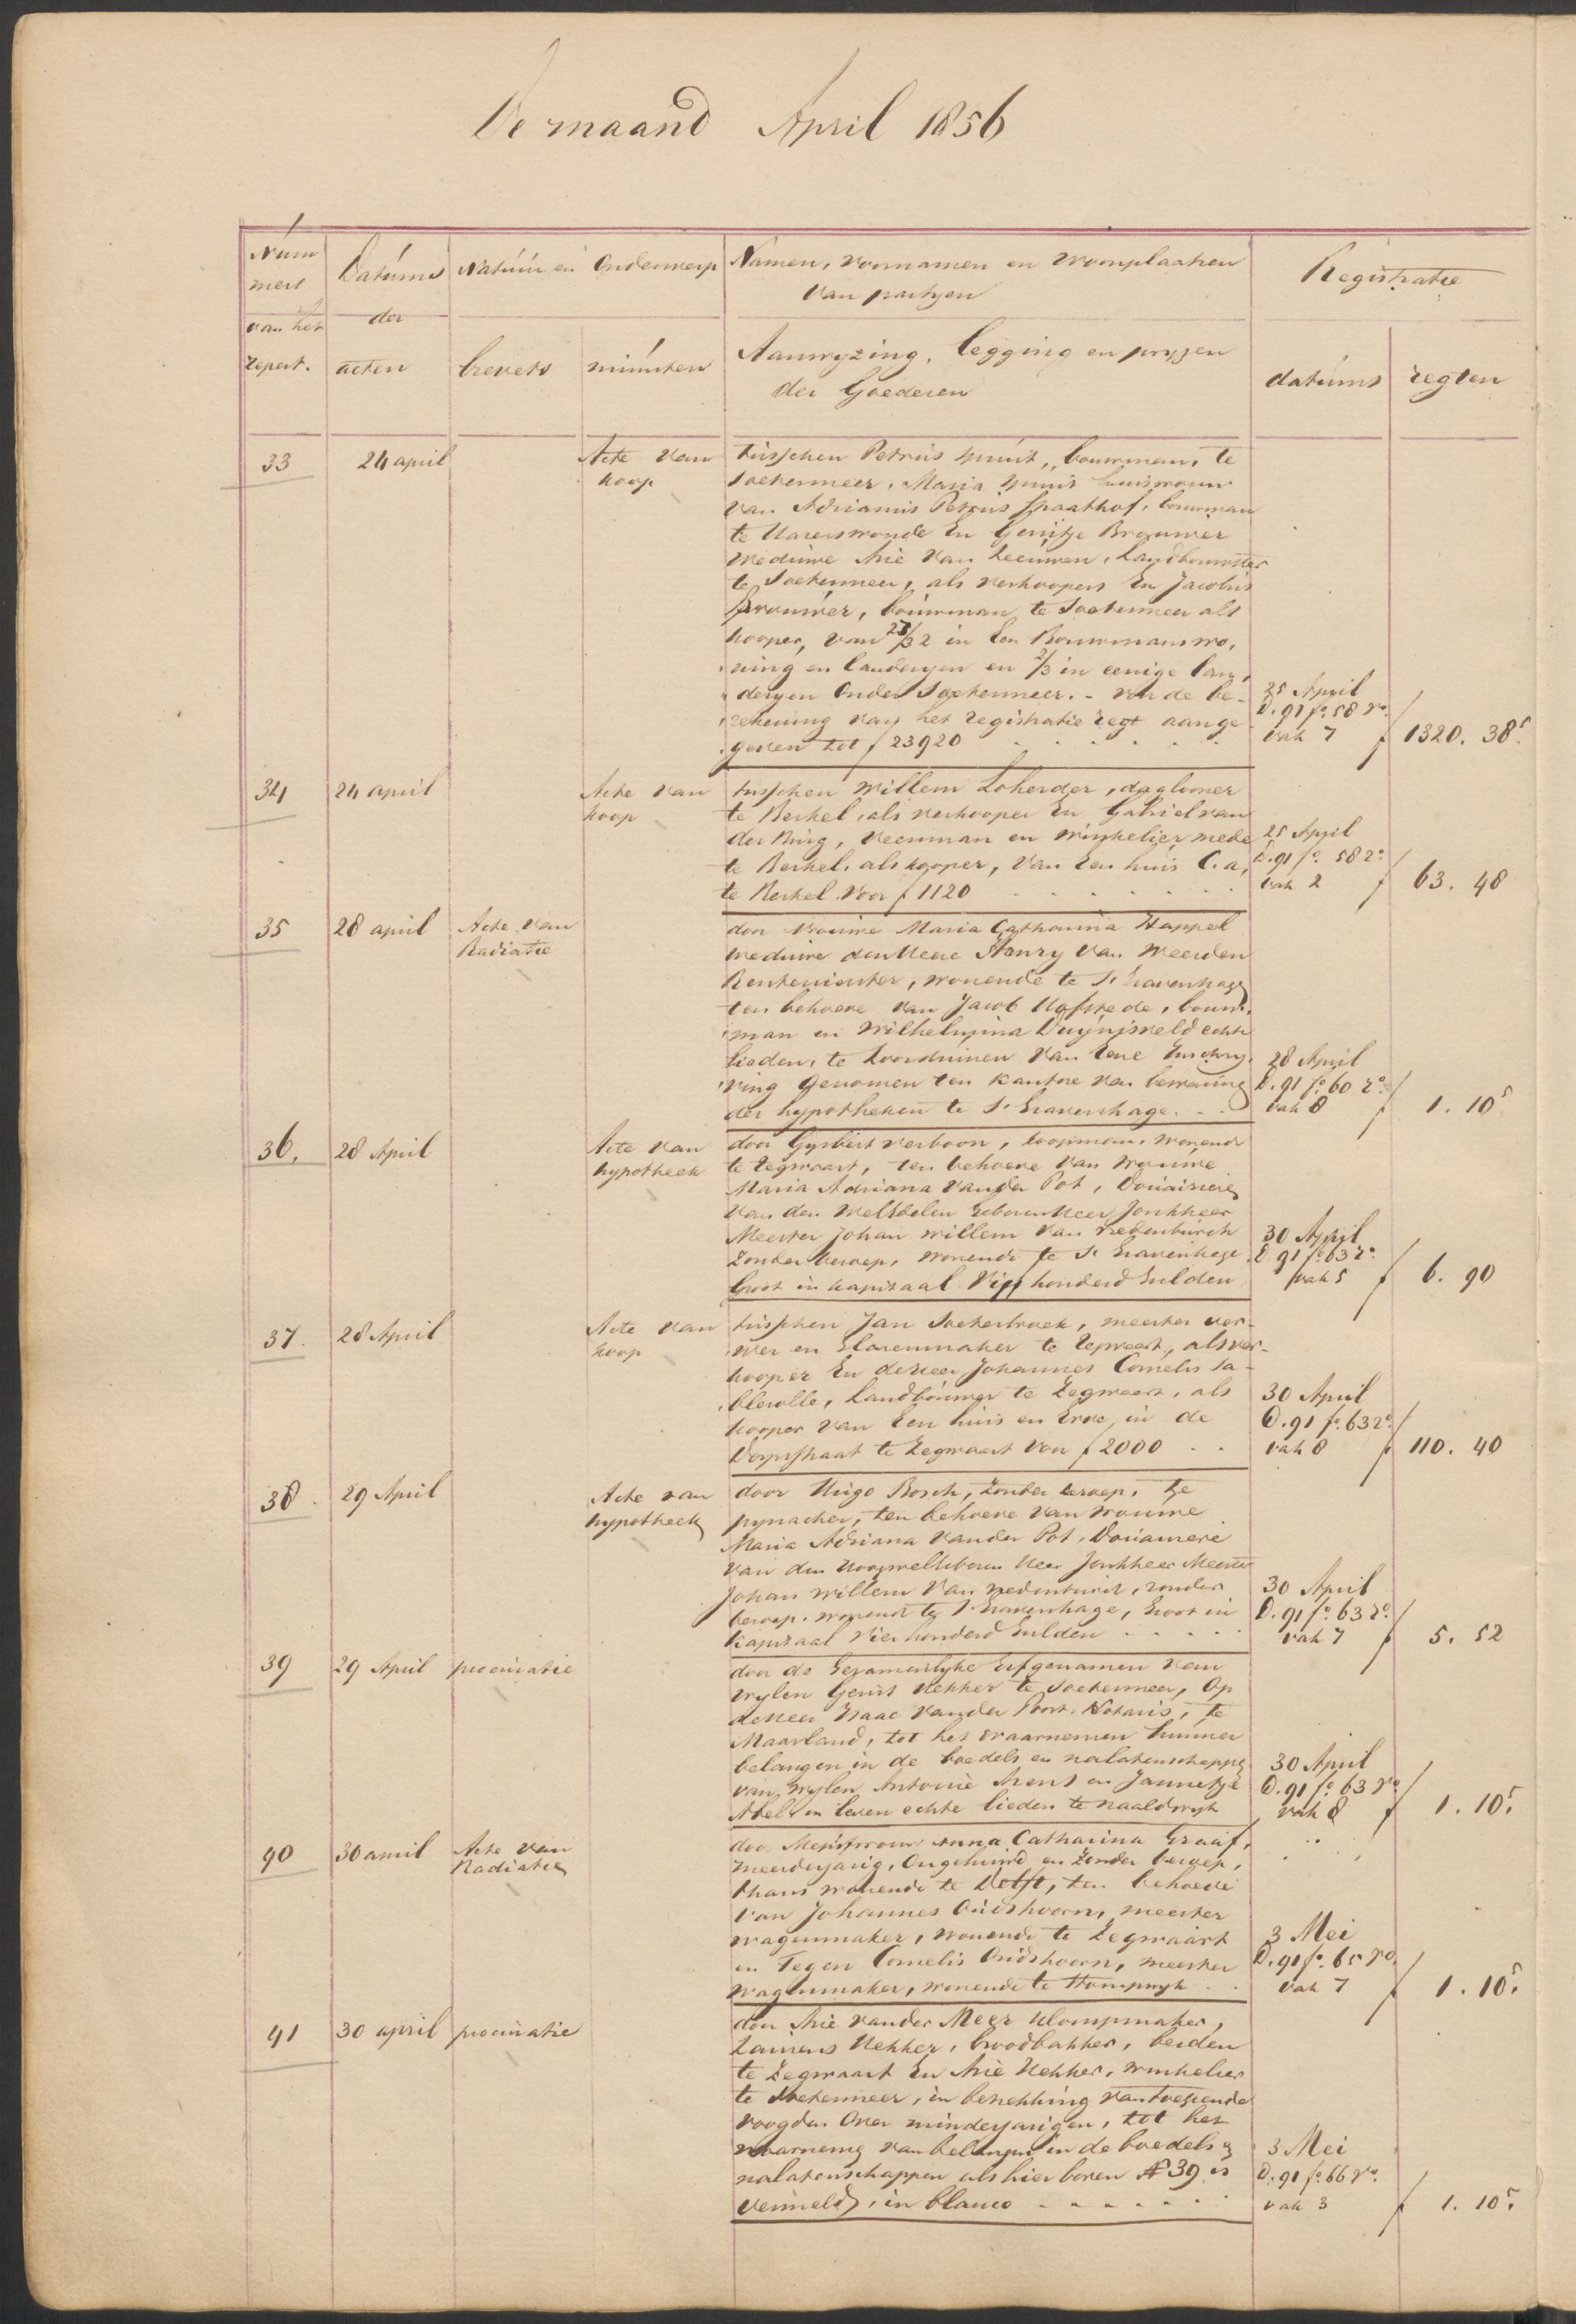 De maand April 1856
Num
mers
van het
repert.
Datums
der
acten
Natuur en Onderwerp
brevets
minuten
Namen, voornamen en woonplaatsen
van partyen
Aanwyzing, legging en pryzen
der Goederen
Registratie
datums
regten
33
24 april
Acte van
koop
tusschen Petrus Spruit, bouwman, te
Soetermeer, Maria Spruit huisvrouw
van Adrianus Petrus Spaathof, bouwman
te Hazerswoude En Gerritje Brouwer
weduwe Arie van Leeuwen, Landbouwster
te Soetermeer, als verkoopers En Jacobus
Brouwer, bouwman te Soetermeer als
kooper, van 23/32 in Een Bouwmanswo,
ning en landeryen en 2/3 in eenige lan,
deryen Onder Soetermeer. - voor de be-
rekening van het registratie regt aange
geven tot f 23920
25 April
D. 91 fo. 58 ro.
vak 7
f 1320. 38⁵.
34
24 april
Acte van
koop
tusschen Willem Loherder, daglooner
te Berkel, als verkooper En Gabriel van
den Burg, Veenman en winkelier mede
te Berkel, als kooper, van Een huis C. a,
te Berkel voor f 1120
25 April
D. 91 fo. 58 ro.
vak 2
f 63. 48
35
28 april
Acte van
Radiatie
door Vrouwe Maria Catharina Happel
weduwe den Heere Henry van Weerden
Rentenierster, wonende te s' Gravenhage
ten behoeve van Jacob Hofstede, bouw,
man en Wilhelmina Duynisveld echte
lieden, te Loosduinen van Eene Inschry,
ving Genomen ten kantore van bewaring
der hypotheken te s' Gravenhage.
28 April
D. 91 fo. 60 ro.
vak 8
f 1. 10⁵
36.
28 April
Acte van
hypotheek
door Gysbert Verboon, koopman, wonend
te Zegwaart, ten behoeve van Vrouwe
Maria Adriana van der Pot, Douairiere
van den WelEdelen Geboren Heer Jonkheer
Meester Johan Willem van Redenburch
Zonder beroep, wonende te s' Gravenhage
Groot in kapitaal Vyf honderd Gulden
30 April
D 91 fo. 63 ro.
vak 5
f 6. 90
37.
28 April
Acte van
koop
tusschen Jan Soeterbroek, meester ver-
wer en Glazenmaker te Zegwaart, als ver-
kooper En de Heer Johannes Cornelis Sa-
blerolle, Landbouwer te Zegwaart, als
kooper van Een huis en Erve, in de
Dorpsstraat te Zegwaart voor f 2000
30 April
D. 91 fo. 63 ro.
vak 8
f 110. 40
38.
29 April
Acte van
hypotheek
door Hugo Bosch, Zonder beroep, te
pynacker, ten behoeve van Vrouwe
Maria Adriana van der Pot, Douairiere
van den Hoogwelgeboren Heer Jonkheer Meester
Johan Willem van Redenburch, zonder
beroep, wonend te s' Gravenhage, Groot in
kapitaal Vier honderd Gulden
30 April
D. 91 fo. 63 ro.
vak 7
f 5. 52
39
29 April
procuratie
door de Gezamenlyke Erfgenamen van
wylen Gerrit Hekker te Soetermeer, Op
de Heer Isaac van der Poort, Notaris, te
Maasland, tot het waarnemen hunner
belangen in de boedels en nalatenschappen
van wylen Antonie Arens en Jannetje
Abel in leven echte lieden te naaldwyk
30 April
D. 91 fo. 63 ro.
vak 8
f 1. 10⁵.
40
30 april
Acte van
Radiatie
door Mejufvrouw Anna Catharina Graaf,
meerderjarig, Ongehuwd en zonder beroep,
thans wonende te Delft, ten behoeve
van Johannes Oudshoorn, meester
wagenmaker, wonende te Zegwaart
en Tegen Cornelis Oudshoorn, meester
wagenmaker, wonende te Stompwyk
3 Mei
D. 91 fo. 65 ro.
vak 7
f 1. 10⁵.
41
30 april
procuratie
door Arie van der Meer klompmaker,
Laurens Hekker, broodbakker, beiden
te Zegwaart En Arie Hekker, winkelier
te Soetermeer, in betrekking van toeziende
voogden Over minderjarigen, tot het
waarneming van belangen in de boedels &
nalatenschappen als hier boven No 39 is
vermeld, in blanco
3 Mei
D. 91 fo. 66 ro.
vak 3
f 1. 10⁵.